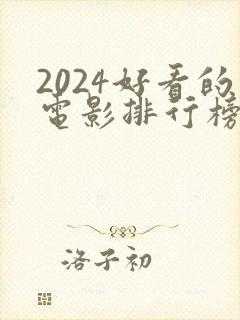 2024好看的
电影排行榜
洛子初